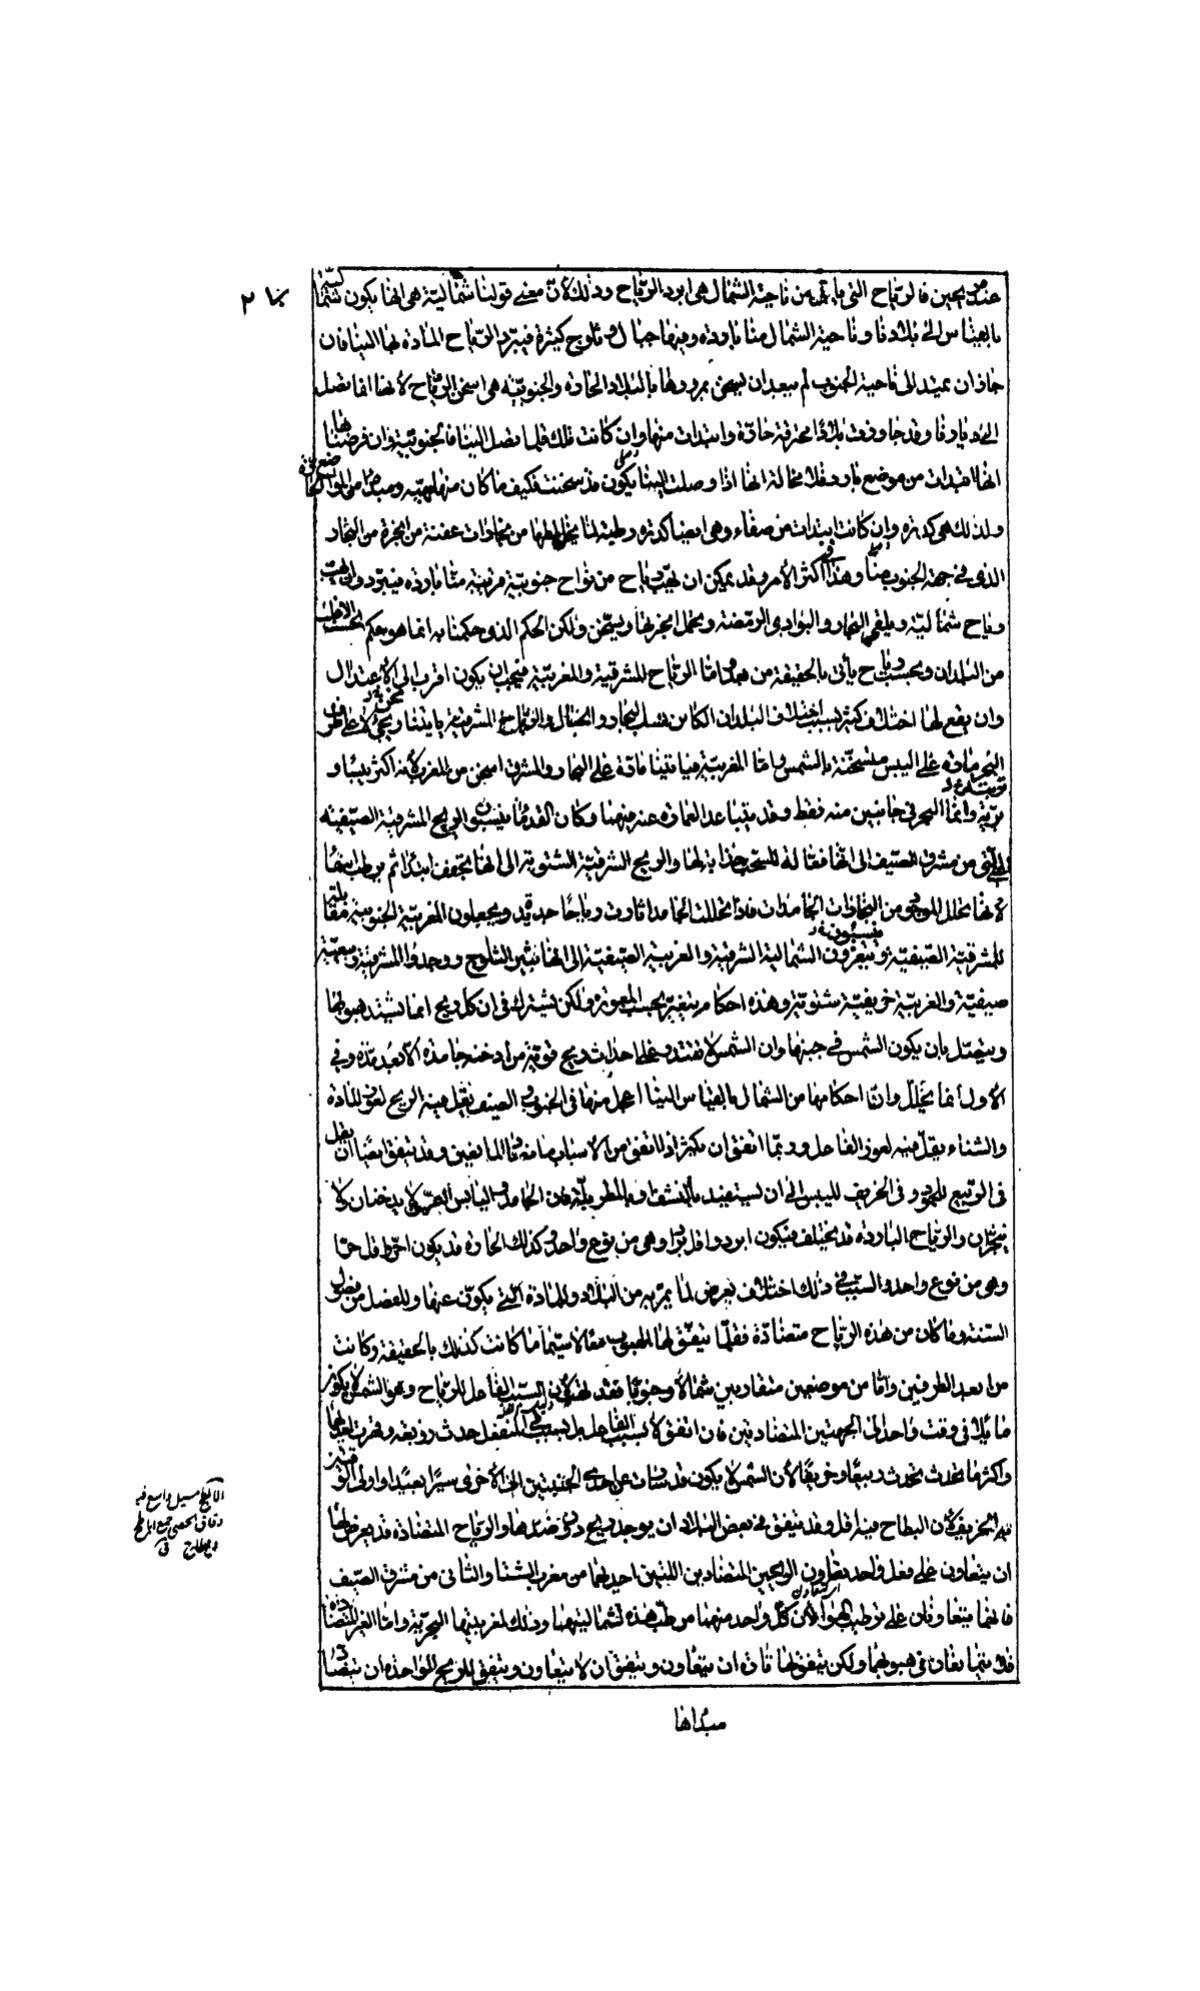 فالرياح التى تأتى من ناحية الشمال هى ابرد الرياح وذلك لأن معنى قولنا شمالية هى انها يكون
بالقياس الى بلادنا وناحية الشمال منا باردة وفيها جبال وثلوج كثيرة فيبرد الرياح المارة بها الينا فان
جاز ان يمتد الى ناحية الجنوب لم يبعد ان يسخن بمرورها بالبلاد الحارة والجنوبية هى اسخن الرياح لأنها انما تصل
الى ديارنا وقد جاوزت بلادا محترقة حارة وابتدات منها وان كانت تلك قلما تصل الينا فالجنوبية وان فرضنا
انها ابتدات من موضع بارد فلا محالة انها اذا وصلت الينا يكون قد سخنت فكيف ما كان
ولذلك هى كدرة وان كانت ابتدات من صفاء وهى ايضا كدرة رطبة لما يخالطها من بخارات عفنة من ابخرة من البحار
الذى فى جهة الجنوب منا وهذا فى اكثر الأمر وقد يمكن ان تهب رياح من نواح جنوبية قريبة منا باردة
رياح شمالية ويلقى القفار والبوادى الرمضة ويحمل ابخرتها ويسخن ولكن الحكم الذى حكمنا به انما هو حكم بحسب الاغلب
من البلدان وبحسب رياح يأتى بالحقيقة من بعد واما الرياح المشرقية والمغربية فيجب ان يكون اقرب الى الاعتدال
وان يقع لها اختلاف كثير بسبب اختلاف البلدان الكائن بسبب البحار والجبال والرياح المشرقية يأتينا
مارة على اليبس مسخنة بالشمس واما المغربية فيأتينا مارة على البحار والمشرق اسخن من المغرب لأنه اكثر يبسا و
برية وانما البحر فى جانبين منه فقط وقد يتباعد العمارة عنه منهما وكان القدماء ينسبون الريح المشرقية الصيفية
التى من مشرق الصيف الى انها فعالة للسحب جذابة لها والريح الشرقية الشتوية الى انها يجفف ابتداء ثم يرطب
لأنها يحلل الموجود من البخارات الجامدات فاذا تحللت الجامدات ثارت رياحا جديدة ويجعلون المغربية الجنوبية مقابلة
للمشرقية الصيفية وينسبون الشمالية الشرقية والغربية الصيفية الى انها يثير الثلوج ووجدوا المشرقية ربيعية
صيفية والغربية خريفية شتوية وهذه احكام يتغير بحسب المعمورة ولكن يشترك فى ان كل ريح انما يشتد هبوبها
ويتصل بان يكون الشمس فى جهتها وان الشمس لا تقتدر على احداث ريح قوية من ادخنة جامدة الا بعد مدة وفى
الأول انما يحلل وانما احكامها من الشمال بالقياس الينا اعمل منها فى الجنوب والصيف يقل فيه الريح لعوز المادة
والشتاء يقل فيه لعوز الفاعل وربما اتفق ان يكثر اذا اتفق من الاسباب ما فات المانعين وقد يتفق ايضا ان يقل
فى الربيع للجمود وفى الخريف لليبس الى ان يستفيد بالنشف او بالمطر بلة فان الجامد واليابس الصرف لا يدخنان ولا
يبخران والرياح الباردة قد يختلف فيكون ابرد واقل بردا وهى من نوع واحد وكذلك الحارة قد يكون احر واقل حرا
وهى من نوع واحد والسبب فى ذلك اختلاف يعرض لما يمر به من البلاد وللمادة التى يكون عنها وللفصل من فصول
السنة وما كان من هذه الرياح متضادة فقلما يتفق لها الهبوب معا لا سيما ما كانت كذلك بالحقيقة وكانت
من ابعد الطرفين واما من موضعين متقاربين شمالا وجنوبا فقد يتفق لأن السبب الفاعل للرياح وهو الشمس لا يكون
مائلا فى وقت واحد الى الجهتين المتضادتين فان اتفق لا بسبب الفاعل بل بسبب المنفعل حدث زوبعة
واكثر ما يحدث يحدث ربيعا وخريفا لأن الشمس لا يكون قد مالت عن احدى الجنبتين الى الأخرى سيرا بعيدا واولى
به الخريف لأن البطاح فيه اقل وقد يتفق فى بعض البلاد ان يوجد ريح دون ضدها والرياح المتضادة قد يعرض لها
ان يتعاون على فعل واحد تعاون الريحين المتضادين اللتين احديهما من مغرب الشتاء والثانى من مشرق الصيف
فانهما يتعاونان على ترطيب الهواء لأن كل واحد منهما مرطب هذه لشماليتها وذلك لمغربيتها البحرية واما الغير المتضادة
فلا يتمانعان فى هبوبهما ولكن يتفق لها تارة ان يتعاون ويتفق ان لا يتعاون ويتفق للريح الواحدة ان يتضاد
مبدأها
الأبطح مسيل واسع فيه
دقاق الحصى جمع اباطح
وبطاح ق